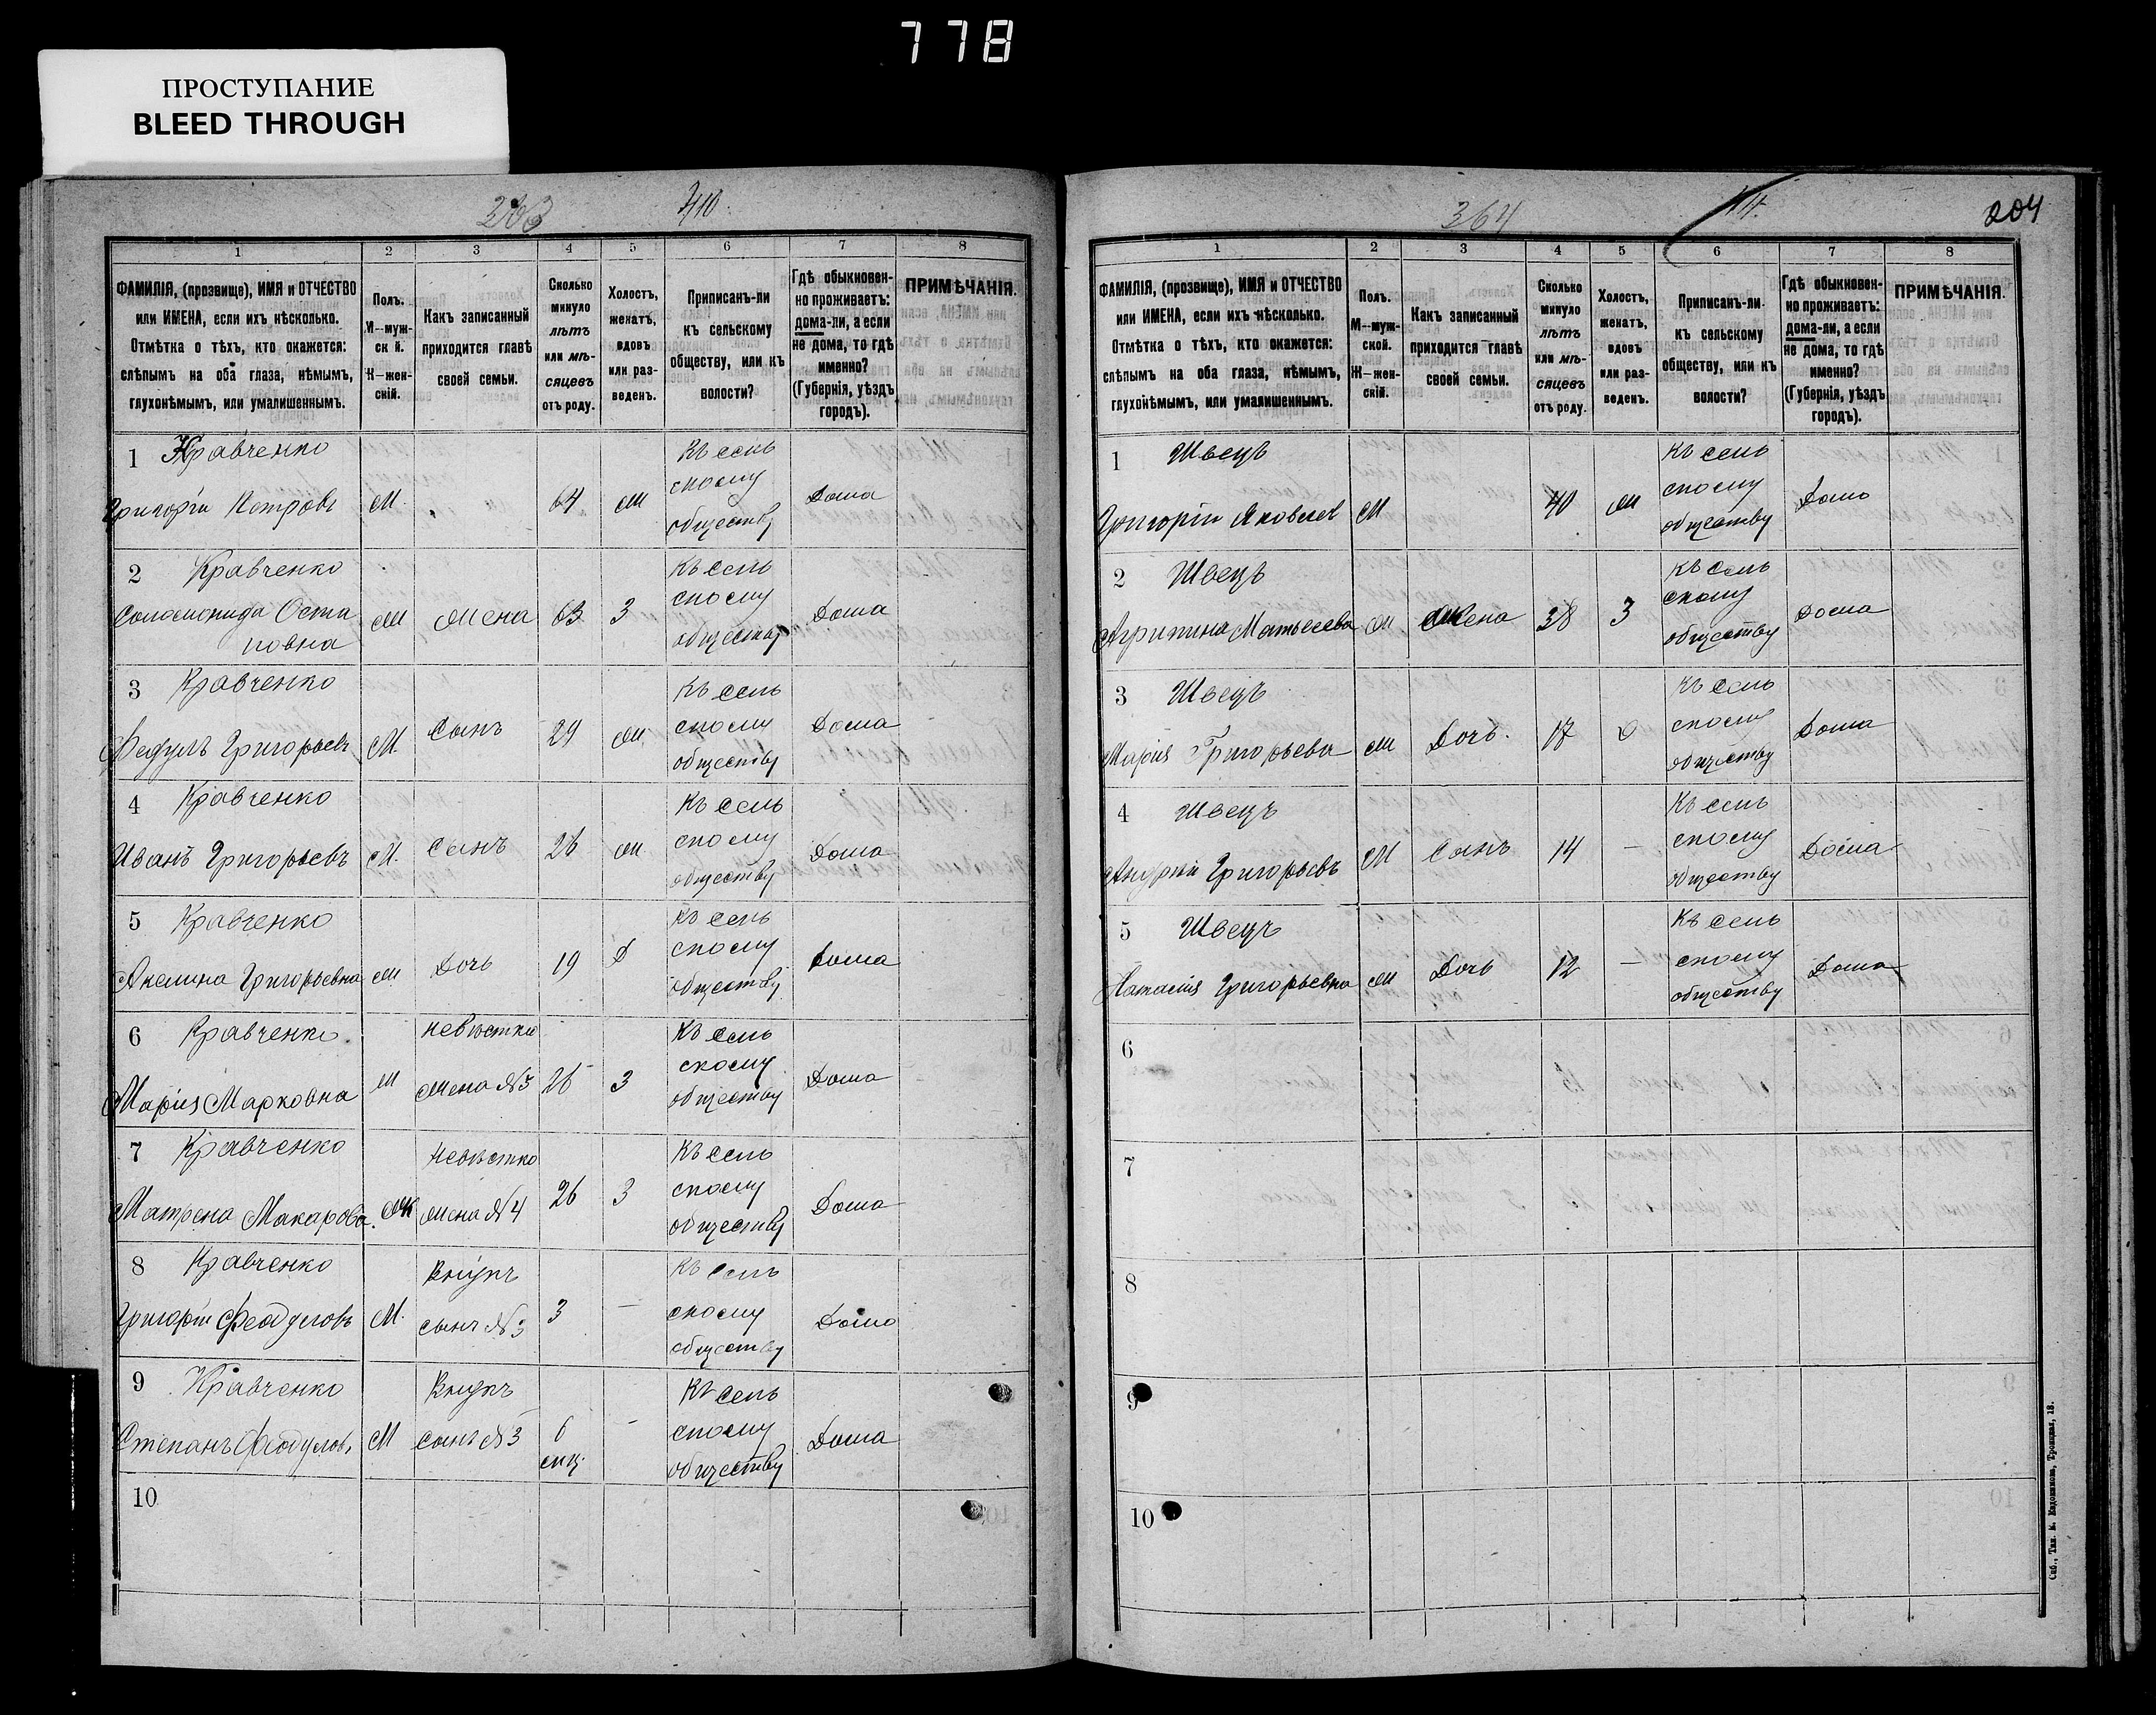 778
ПРОСТУПАНИЕ
BLEED THROUGH
410
1 2 3 4 5 6 7 8
ФАМИЛІЯ, (прозвище), ИМЯ и ОТЧЕСТВО
или ИМЕНА, если ихъ нѣсколько.
Отмѣтка о тѣхъ, кто окажется:
слѣпымъ на оба глаза, нѣмымъ,
глухонѣмымъ, или умалишеннымъ.
Полъ.
М—муж-
ск й.
Ж—жен-
скій.
Какъ записанный
приходится главѣ
своей семьи.
Сколько
минуло
лѣтъ
или мѣ-
сяцевъ
отъ роду.
Холостъ,
женатъ,
вдовъ
или раз-
веденъ.
Приписанъ-ли
къ сельскому
обществу, или къ
волости?
Гдѣ обыкновен-
но проживаетъ:
дома-ли, а если
не дома, то гдѣ
именно?
(Губернія, уѣздъ
городъ).
ПРИМѢЧАНІЯ.
1 Кравченко
Григорій Петровъ М. 64 ж Къ сель
скому
обществу Дома
2 Кравченко
Соломонида Оста
повна ж жена 63 З Къ сель
скому
обществу Дома
3 Кравченко
Федулъ Григорьевъ М. Сынъ 29 ж Къ сель
скому
обществу Дома
4 Кравченко
Иванъ Григорьевъ М. Сынъ 26 ж Къ сель
скому
обществу Дома
5 Кравченко
Акелина Григорьевна ж Дочь 19 Д Къ сель
скому
обществу Дома
6 Кравченко
Марія Марковна ж невѣстка
жена №3 26 З Къ сель
скому
обществу Дома
7 Кравченко
Матрена Макарова ж невѣстка
жена №4 26 З Къ сель
скому
обществу Дома
8 Кравченко
Григорій Федуловъ М. Внукъ
сынъ №3 3 — Къ сель
скому
обществу Дома
9 Кравченко
Степанъ Федулов. М Внукъ
сынъ №3 6
мц. - Къ сель
скому
обществу Дома
10
364
204
1 2 3 4 5 6 7 8
ФАМИЛІЯ, (прозвище), ИМЯ и ОТЧЕСТВО
или ИМЕНА, если ихъ нѣсколько.
Отмѣтка о тѣхъ, кто окажется:
слѣпымъ на оба глаза, нѣмымъ,
глухонѣмымъ, или умалишеннымъ.
Полъ.
М—муж-
ской.
Ж—жен-
скій.
Какъ записанный
приходится главѣ
своей семьи.
Сколько
минуло
лѣтъ
или мѣ-
сяцевъ
отъ роду.
Холостъ,
женатъ,
вдовъ
или раз-
веденъ.
Приписанъ-ли
къ сельскому
обществу, или къ
волости?
Гдѣ обыкновен-
но проживаетъ:
дома-ли, а если
не дома, то гдѣ
именно?
(Губернія, уѣздъ
городъ).
ПРИМѢЧАНІЯ.
1 Швецъ
Григорій Яковлев М 40 ж Къ сель
скому
обществу Дома
2 Швецъ
Агрипина Матвеева ж жена 38 З Къ сель
скому
обществу Дома
3 Швецъ
Марія Григорьева ж Дочь. 17 Д Къ сель
скому
обществу Дома
4 Швецъ
Андрій Григорьевъ М Сынъ 14 — Къ сель
скому
обществу Дома
5 Швецъ
Натасія Григорьевна ж Дочь 12 — Къ сель
скому
обществу Дома
6
7
8
9
10
Спб., Тип. М. Евдокимова, Троицкая, 18.